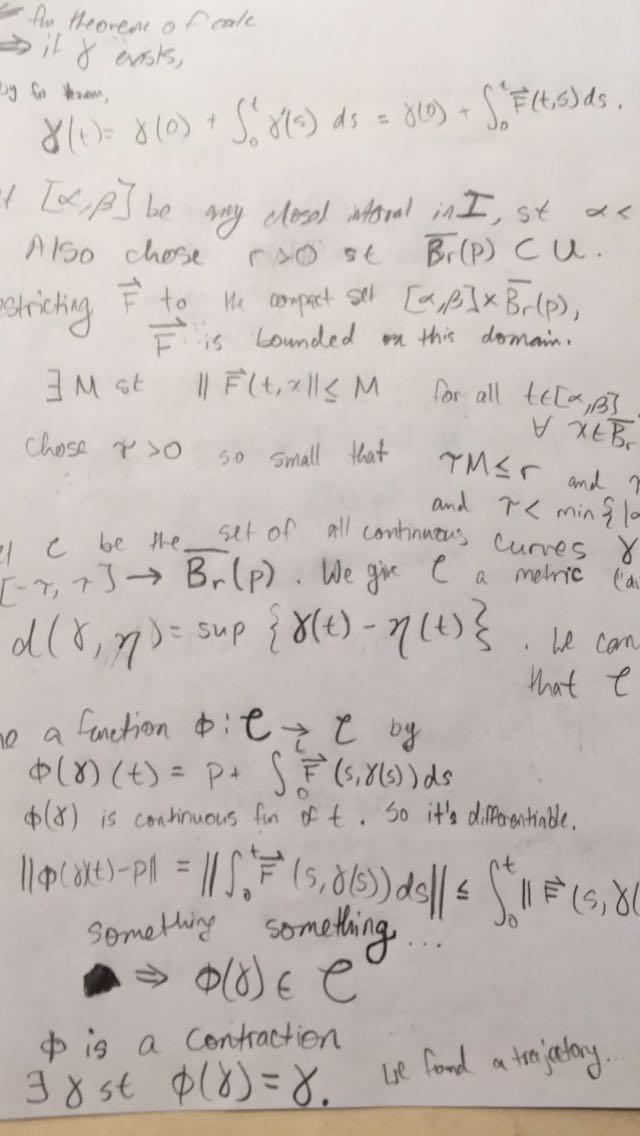 theorem of calc
⇒ if γ exists,
by
γ(t) = γ(0) + ∫₀ᵗ γ'(s) ds = γ(0) + ∫₀ᵗ F⃗(t,s) ds.
[α,β] be any closed interval in I, st α <
Also chose r>0 st B̅r(p) ⊂ U.
estricting F⃗ to the compact set [α,β] × B̅r(p),
F⃗ is bounded on this domain.
∃ M st ‖F⃗(t,x‖ ≤ M for all t∈[α,β]
∀ x∈B̅r
chose τ>0 so small that τM ≤ r and
and τ < min{|
C be the set of all continuous curves γ
[-τ, τ] → B̅r(p). We give C a metric
d(γ, η) = sup {γ(t) - η(t)}. We can
that C
a function Φ: C → C by
Φ(γ)(t) = p + ∫₀ᵗ F⃗(s,γ(s)) ds
Φ(γ) is continuous fun of t. So it's differentiable.
‖Φ(γ)(t)-p‖ = ‖∫₀ᵗ F⃗(s,γ(s)) ds‖ ≤ ∫₀ᵗ ‖F⃗(s,γ(
something something...
⇒ Φ(γ) ∈ C
Φ is a contraction
∃ γ st Φ(γ) = γ. We found a trajectory...